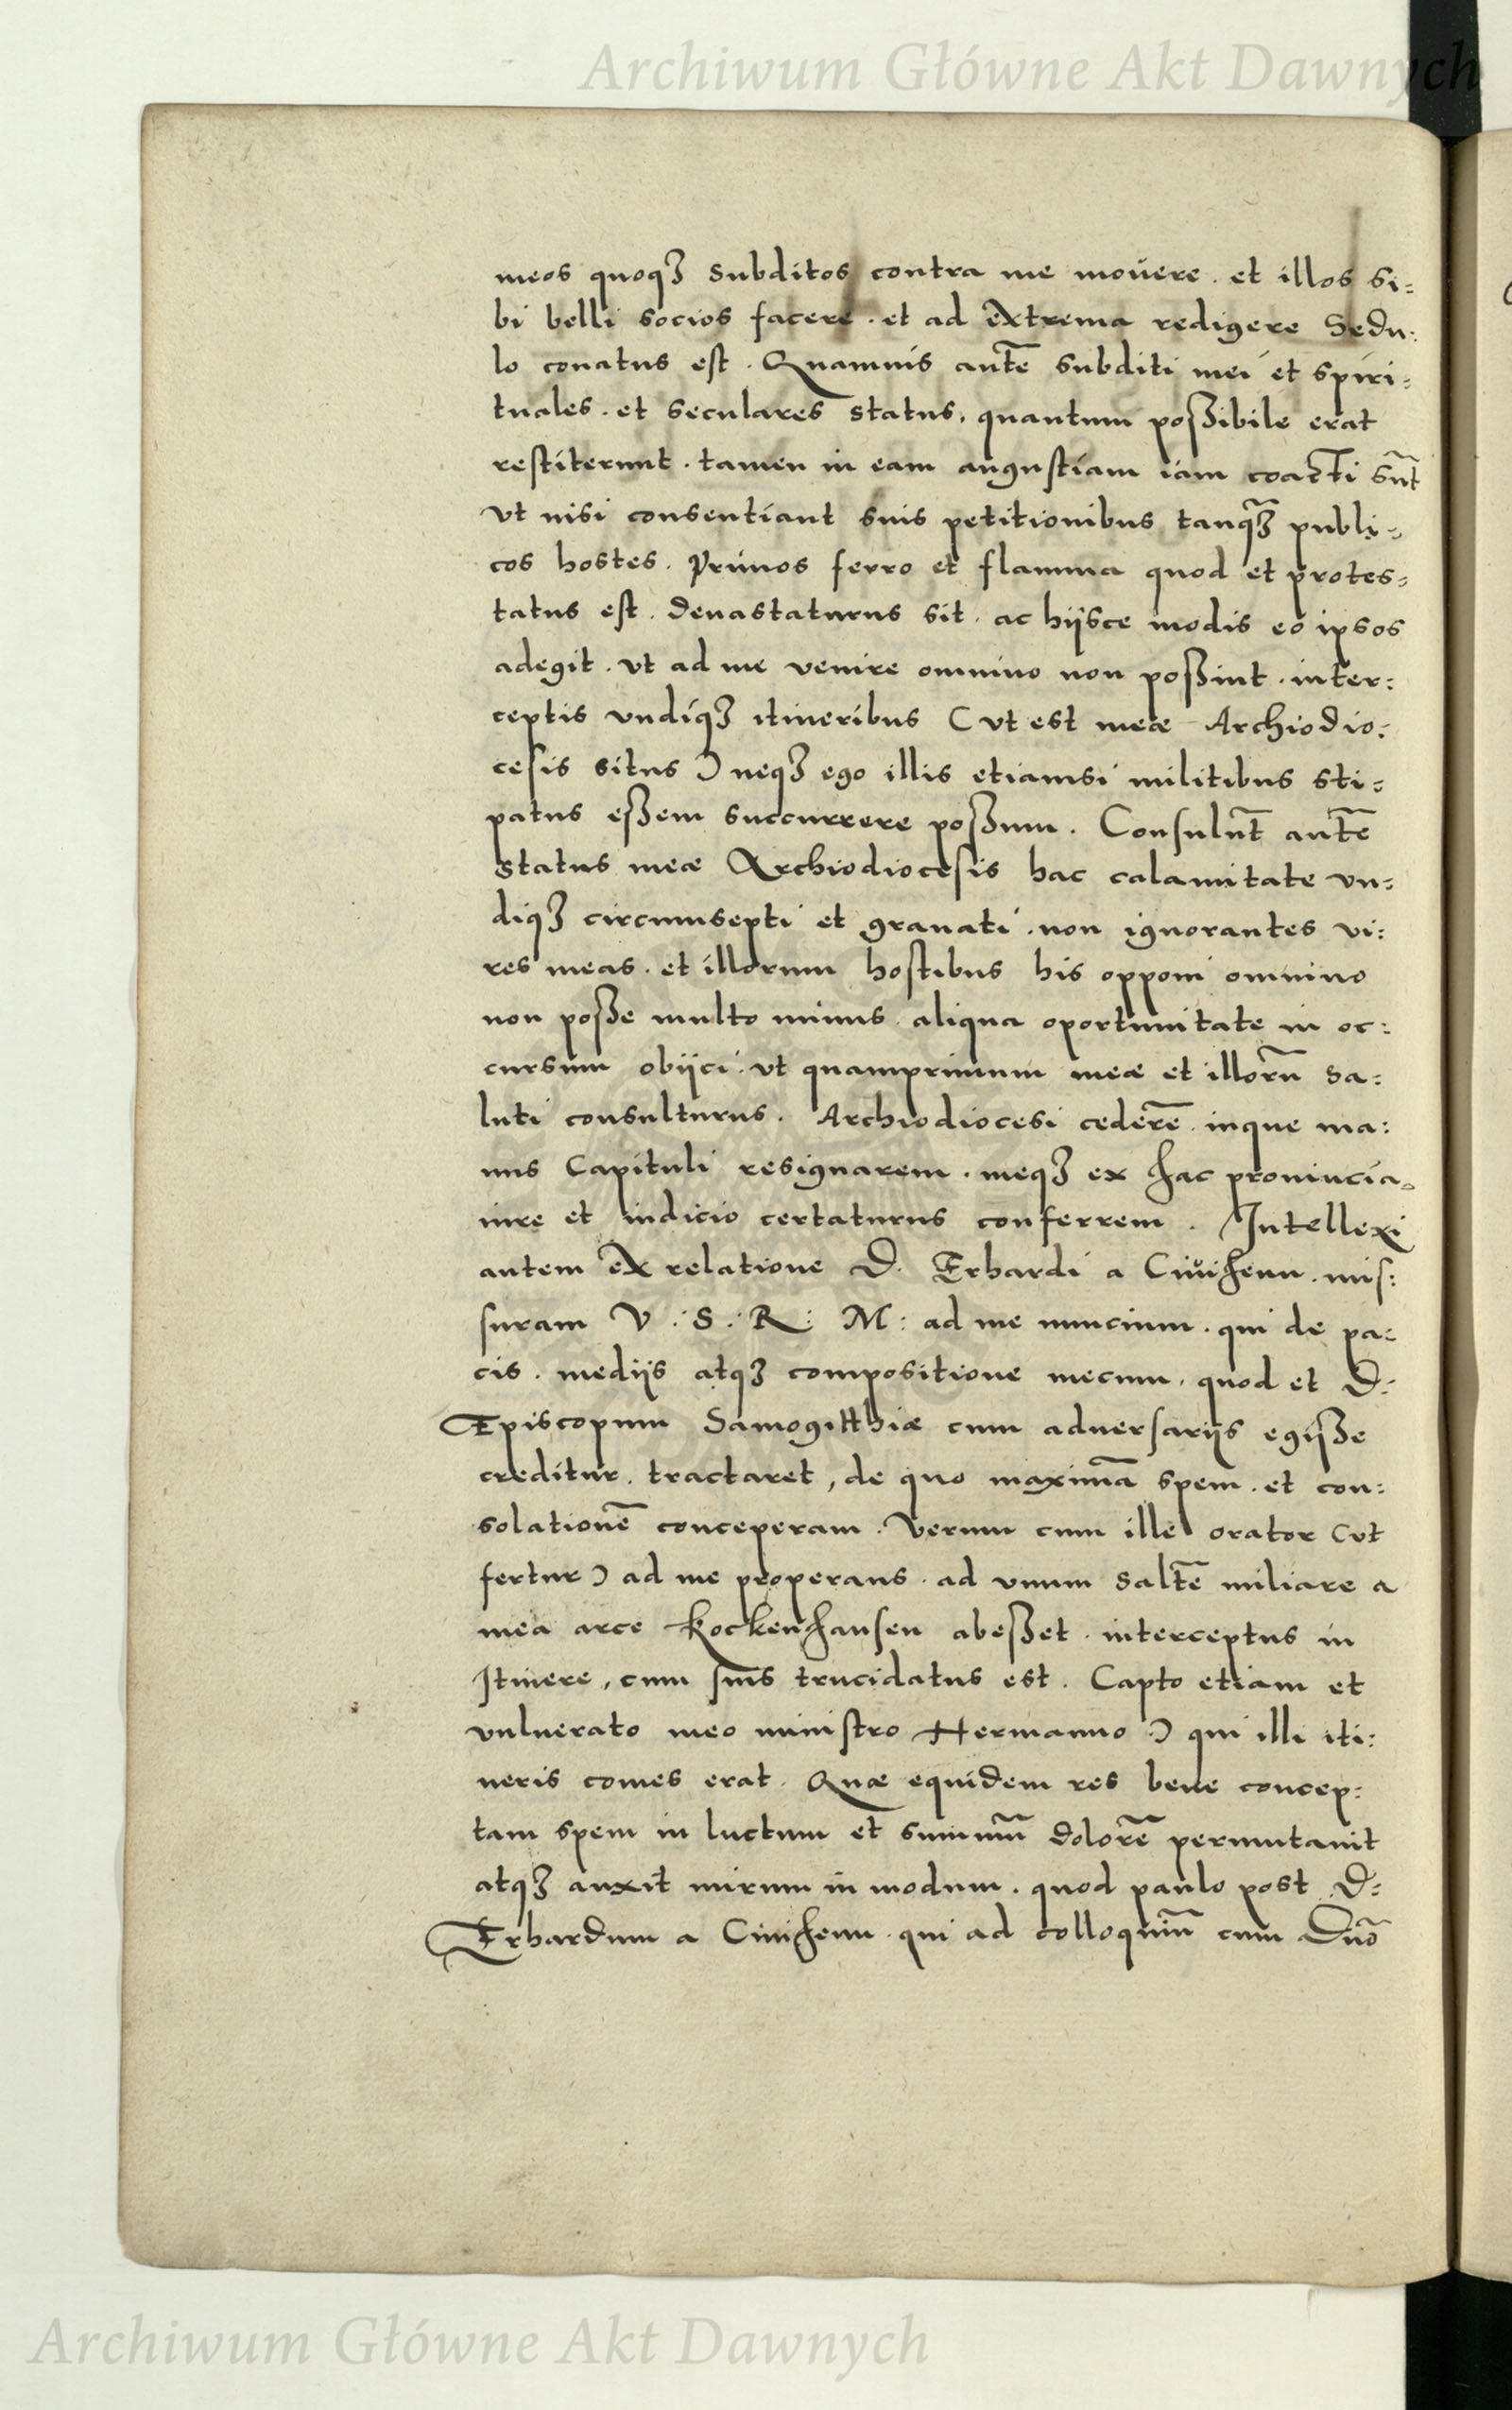 Archiwum Główne Akt Dawnych
meos quoqꝫ subditos contra me mouere . et illos si=
bi belli socios facere . et ad extrema redigere sedu=
lo conatus est . Quamuis aut̃e subditi mei et spiri=
tuales . et seculares status, quantum poßibile erat
restiterunt . tamen in eam angustiam iam coacti sũt
vt nisi consentiant suis petitionibus tanq̃ꝫ publi=
cos hostes . Primos ferro et flamma quod et protes=
tatus est . deuastaturus sit . ac hijsce modis eo ipsos
adegit . vt ad me venire omnino non poßint . inter=
ceptis vndiqꝫ itineribus ( vt est meæ Archiodio=
cesis situs ) neqꝫ ego illis etiamsi militibus sti=
patus eßem succurrere poßum . Consulũt aut̃e
status meæ Archiodiocesis hac calamitate vn=
diqꝫ circumsepti et grauati . non ignorantes vi=
res meas . et illorum hostibus his opponi omnino
non poße multo minus aliqua oportunitate in oc=
cursum obijci . vt quamprimum meæ et illorũ sa=
luti consulturus . Archiodiocesi cederẽ . inque ma=
nus Capituli resignarem . meqꝫ ex hac prouincia
iure et iudicio certaturus conferrem . Intellexi
autem ex relatione D. Erhardi a Ciuihenn . mis=
suram V : S : R : M : ad me nuncium . qui de pa=
cis . medijs atqꝫ compositione mecum . quod et D=
Episcopum Samogitthiæ cum aduersarijs egiße
creditur . tractaret , de quo maximã spem . et con=
solationẽ conceperam . Verum cum ille orator ( vt
fertur ) ad me properans . ad vnum saltẽ miliare a
mea arce Kockenhausen abeßet . interceptus in
Itinere , cum suis trucidatus est . Capto etiam et
vulnerato meo ministro Hermanno ) qui illi iti=
neris comes erat . Quæ equidem res bene concep=
tam spem in luctum et summũ dolorẽ permutauit
atqꝫ auxit mirum in modum . quod paulo post D=
Erhardum a Ciuihenn . qui ad colloquiũ cum Dño
Archiwum Główne Akt Dawnych